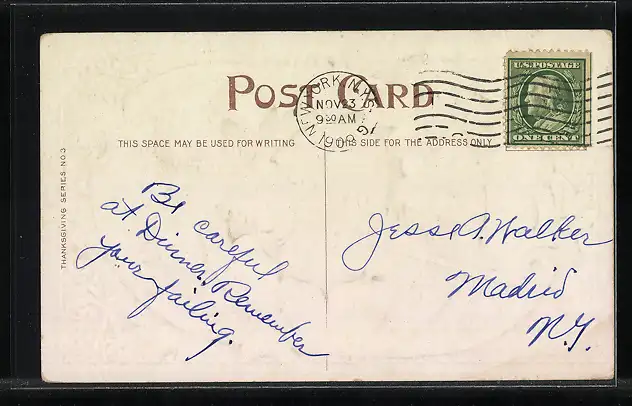 POST CARD
NEW YORK, N.Y.
NOV 23
9 30 AM
1909
U.S. POSTAGE
ONE CENT
THIS SPACE MAY BE USED FOR WRITING
THIS SIDE FOR THE ADDRESS ONLY
THANKSGIVING SERIES NO. 3
Be careful
at Dinner. Remember
your failing.
Jesse A. Walker
Madrid
N.Y.